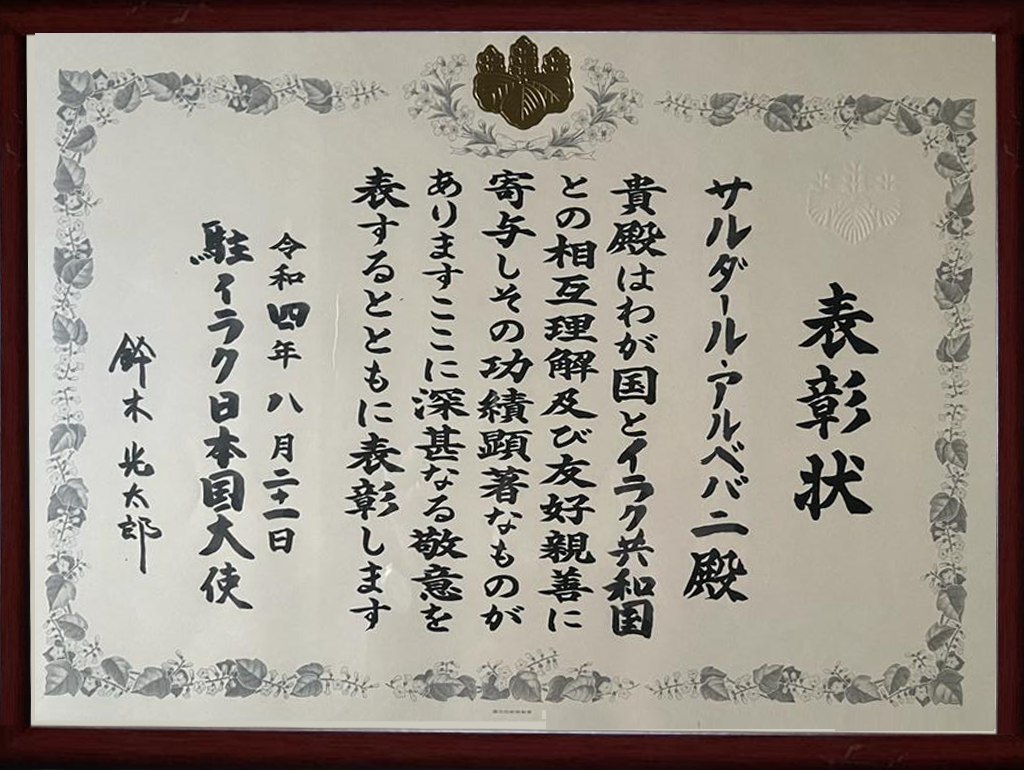 表彰状
サルダール・アルベバニ殿
貴殿はわが国とイラク共和国
との相互理解及び友好親善に
寄与しその功績顕著なものが
ありますここに深甚なる敬意を
表するとともに表彰します
令和四年八月二十一日
駐イラク日本国大使
鈴木光太郎